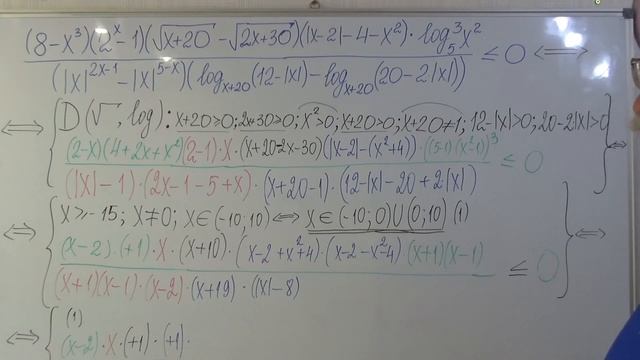 (8-x³)(2ˣ-1)(√x+20 - √2x+30)(|x-2|-4-x²)·log₅³x² ≤ 0 ⟺
(|x|²ˣ⁻¹-|x|⁵⁻ˣ)(log_{x+20}(12-|x|)-log_{x+20}(20-2|x|))
⟺ { D(√, log): x+20>0; 2x+30>0; x²>0; x+20>0; x+20≠1; 12-|x|>0; 20-2|x|>0
(2-x)(4+2x+x²)(2-1)·x·(x+20-2x-30)(|x-2|-(x²+4))·((5-1)(x²-1))³ ≤ 0 } ⟺
(|x|-1)·(2x-1-5+x)·(x+20-1)·(12-|x|-20+2|x|)
⟺ { x≥-15; x≠0; x∈(-10;10) ⟺ x∈(-10;0)∪(0;10) (1)
(x-2)·(+1)·x·(x+10)·(x-2+x²+4)·(x-2-x²-4)(x+1)(x-1) ≤ 0 } ⟺
(x+1)(x-1)·(x-2)·(x+19)·(|x|-8)
⟺ { (1)
(x-2)·x·(+1)·(+1)·